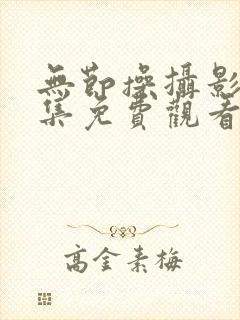 無節操攝影
集免費觀看
高金素梅